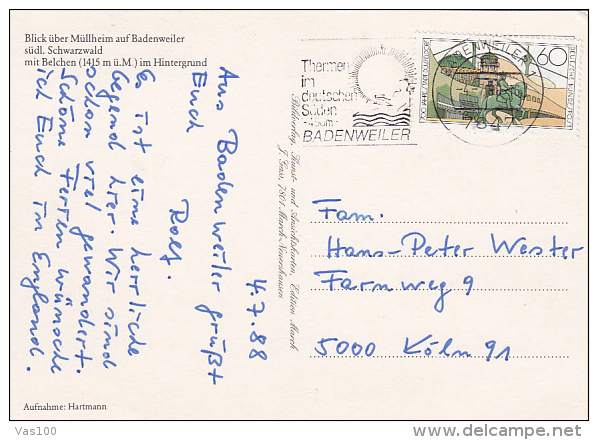 Blick über Müllheim auf Badenweiler
südl. Schwarzwald
mit Belchen (1415 m ü.M.) im Hintergrund
4.7.88
Aus Badenweiler grüßt
Euch Rolf.
Es ist eine herrliche
Gegend hier. Wir sind
schon viel gewandert.
Schöne Ferien wünsche
ich Euch in England.
Aufnahme: Hartmann
Thermen
im
deutschen
Süden
-450m-
BADENWEILER
BADENWEILER 1
7847
60
DEUTSCHE BUNDESPOST
J. Gass, 7801 March-Neuershausen
Fam.
Hans-Peter Wester
Farnweg 9
5000 Köln 91
Vas100
www.delcampe.net